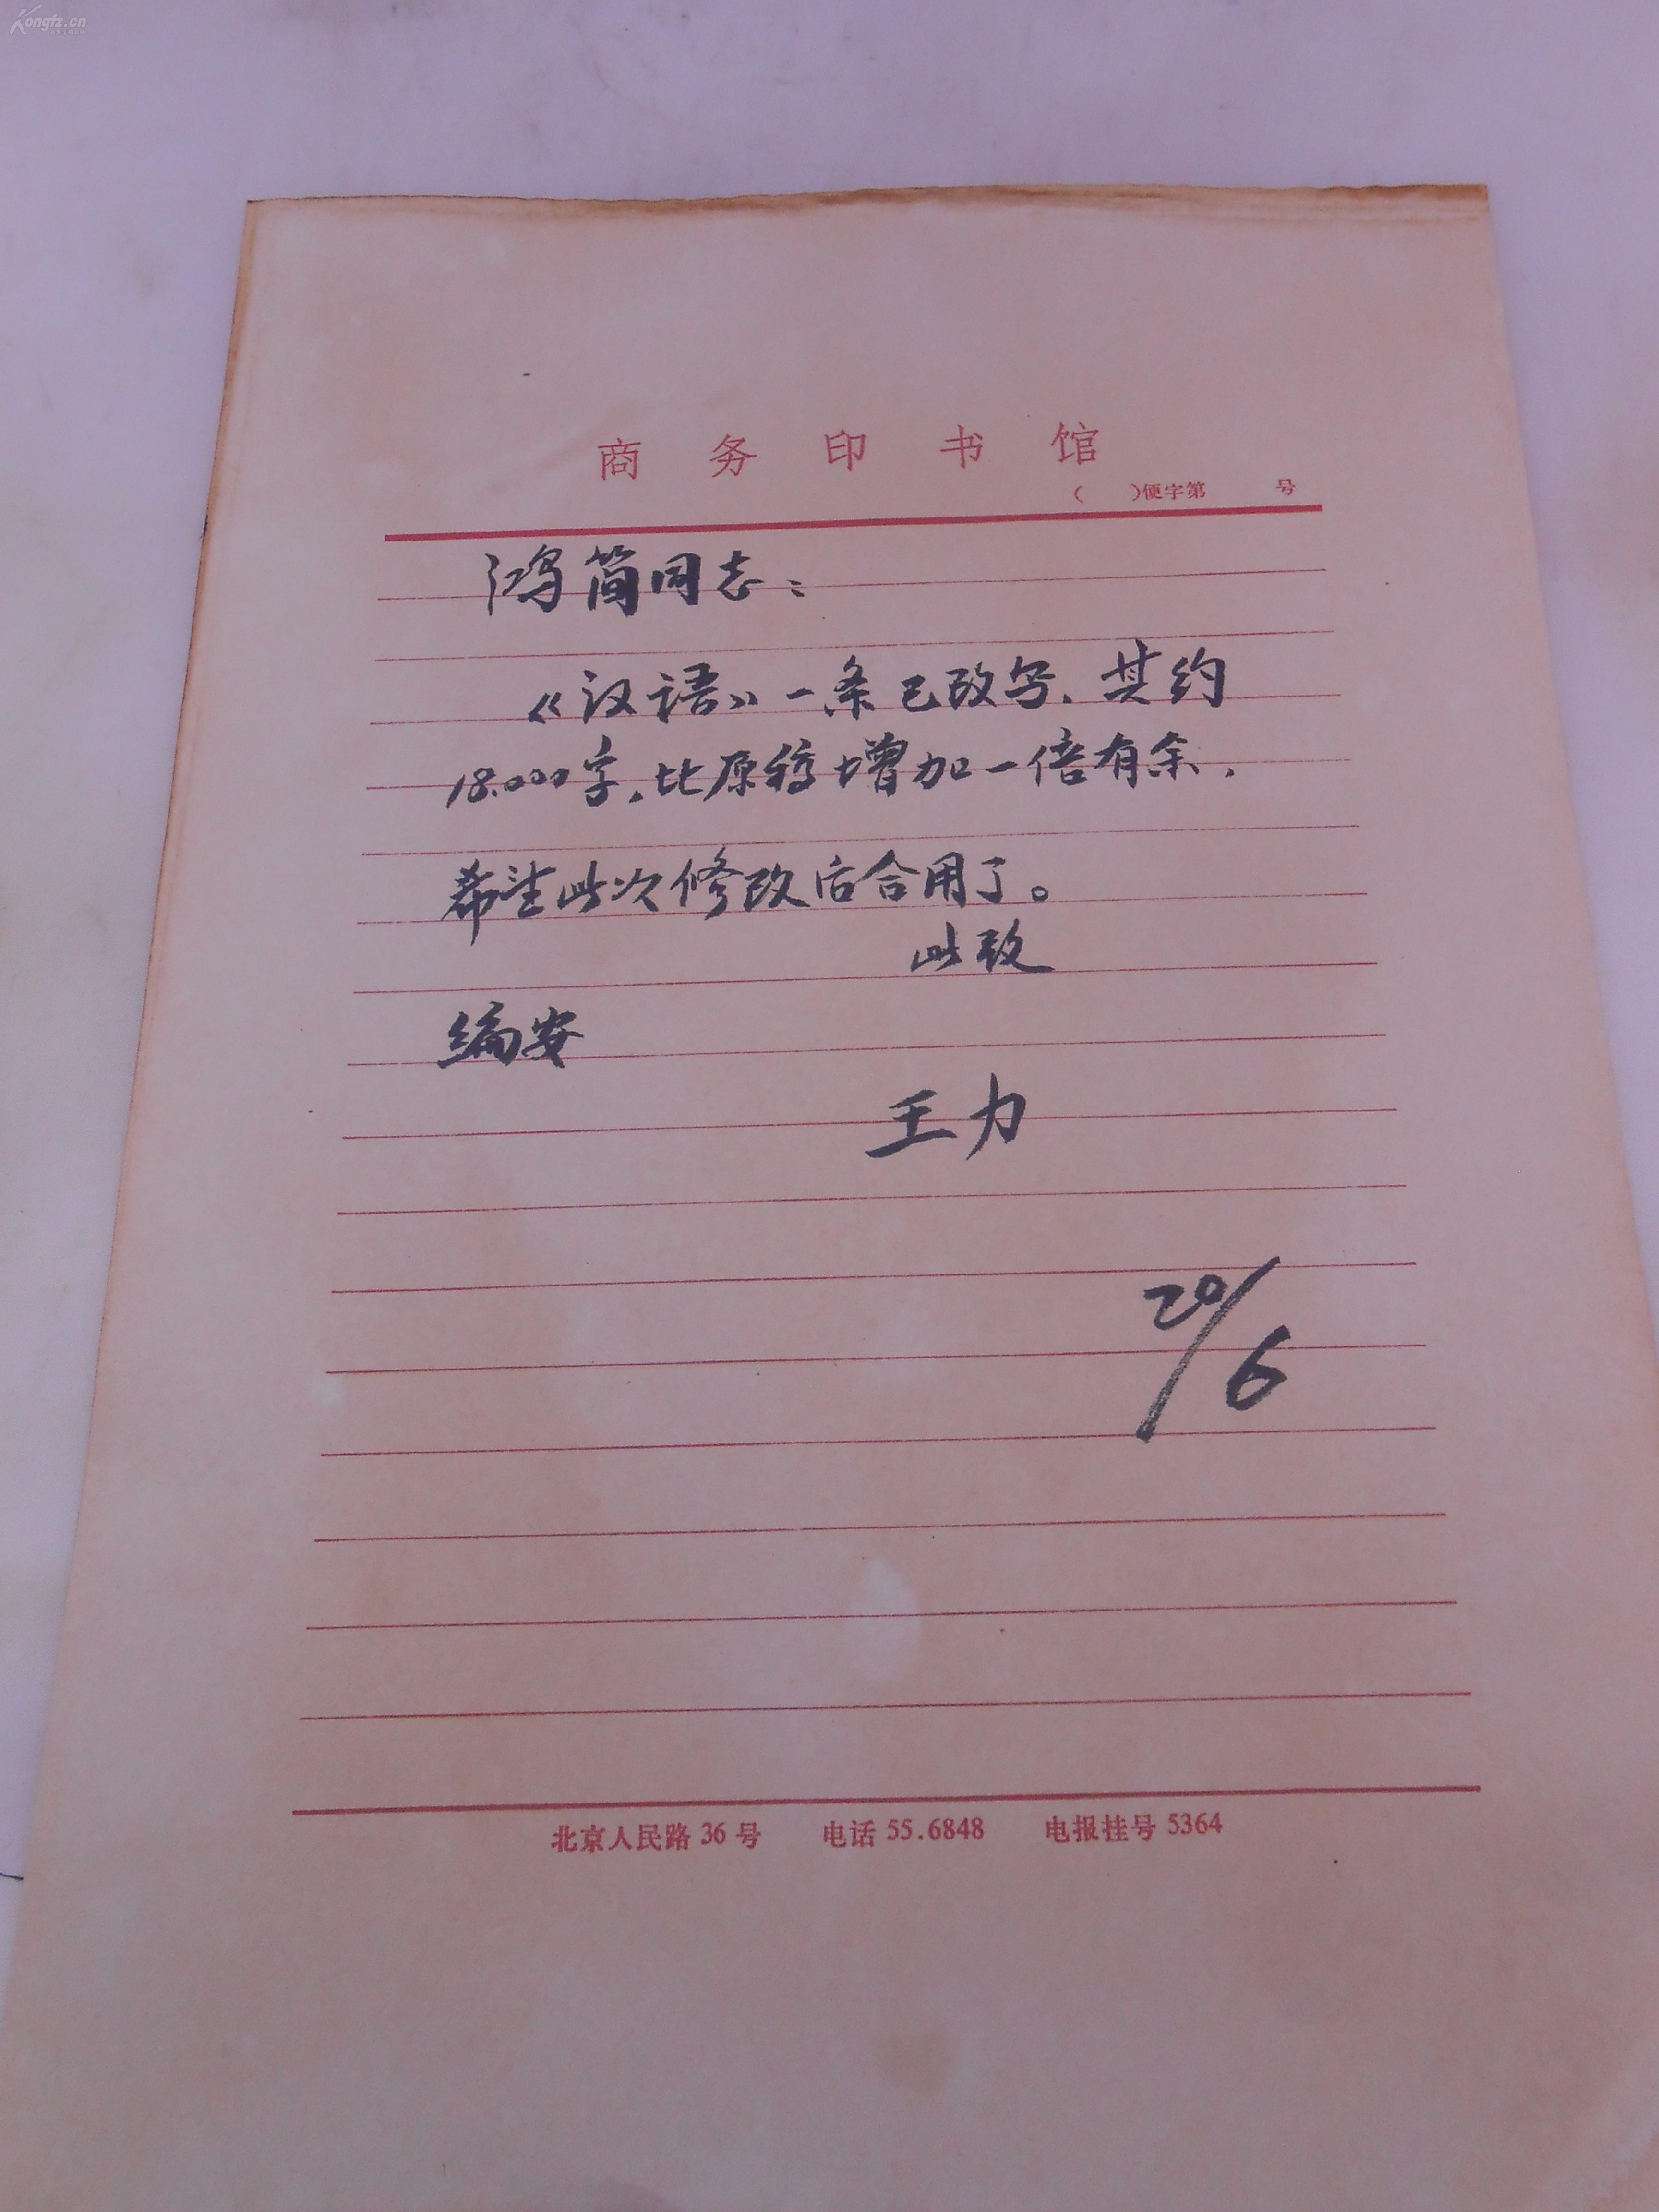 Kongfz.cn
商务印书馆
（　　）便字第　　号
鸿简同志：
《汉语》一条已改写，共约
18.000字，比原稿增加一倍有余，
希望此次修改后合用了。
此致
编安
王力
20/6
北京人民路36号　电话55.6848　电报挂号5364